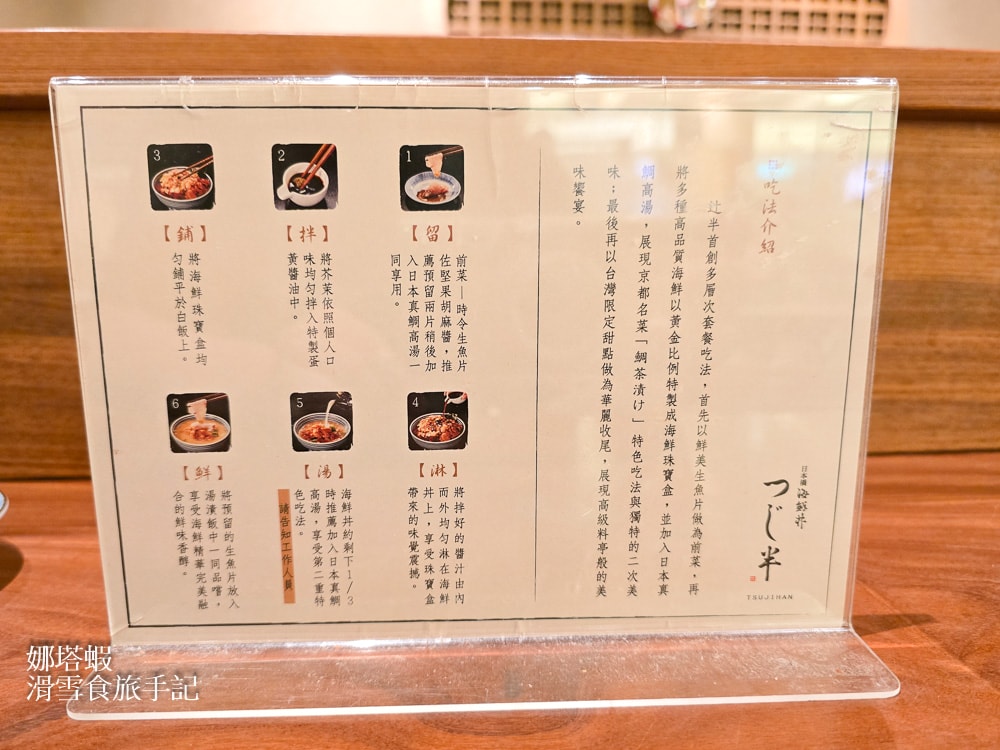 吃法介紹
辻半首創多層次套餐吃法，首先以鮮美生魚片做為前菜，再
將多種高品質海鮮以黃金比例特製成海鮮珠寶盒，並加入日本真
鯛高湯，展現京都名菜「鯛茶漬け」特色吃法與獨特的二次美
味；最後再以台灣限定甜點做為華麗收尾，展現高級料亭般的美
味饗宴。
日本橋
海鮮丼
つじ半
TSUJIHAN
1
【留】
前菜—時令生魚片
佐堅果胡麻醬，推
薦預留兩片稍後加
入日本真鯛高湯一
同享用。
2
【拌】
將芥茉依照個人口
味均勻拌入特製蛋
黃醬油中。
3
【鋪】
將海鮮珠寶盒均
勻鋪平於白飯上。
4
【淋】
將拌好的醬汁由內
而外均勻淋在海鮮
丼上，享受珠寶盒
帶來的味覺震撼。
5
【湯】
海鮮丼約剩下1/3
時推薦加入日本真鯛
高湯，享受第二重特
色吃法。
請告知工作人員
6
【鮮】
將預留的生魚片放入
湯漬飯中一同品嚐，
享受海鮮精華完美融
合的鮮味香醇。
娜塔蝦
滑雪食旅手記